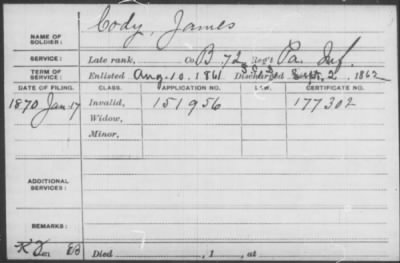 Cody, James
NAME OF SOLDIER:
SERVICE: Late rank, Co. B, 72 Reg't Pa. Inf.
TERM OF SERVICE: Enlisted Aug. 10, 1861 Discharged Sept. 2, 1862
DATE OF FILING. CLASS. APPLICATION NO. LAW. CERTIFICATE NO.
1870 Jan. 17 Invalid, 151956 177302
Widow,
Minor,
ADDITIONAL SERVICES:
REMARKS:
Died , 1 , at